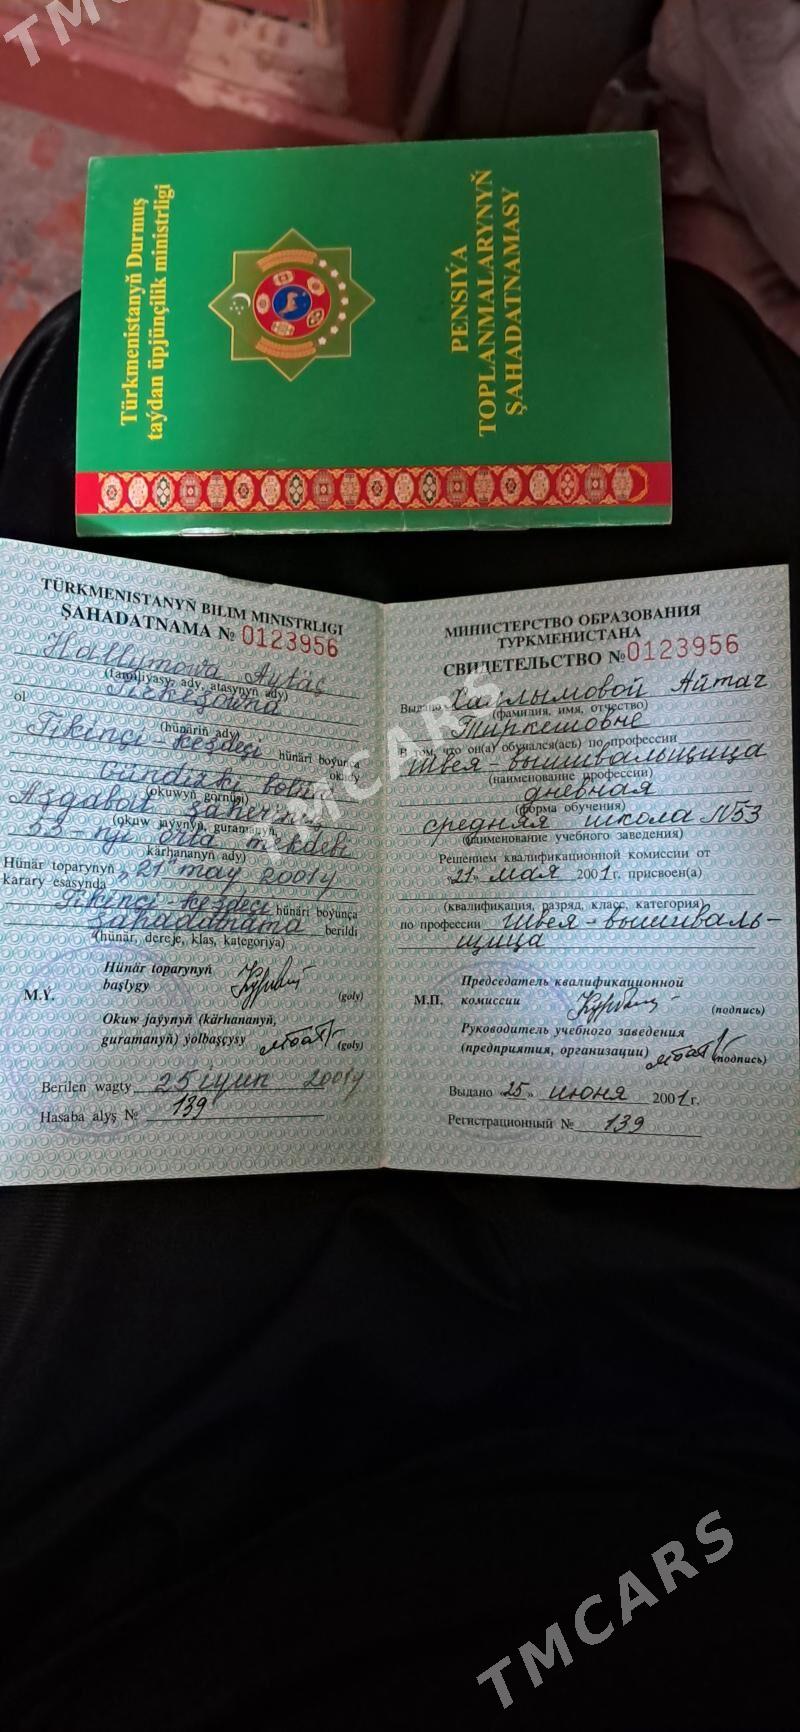 TMCARS
Türkmenistanyň Durmuş
taýdan üpjünçilik ministrligi
PENSIÝA
TOPLANMALARYNYŇ
ŞAHADATNAMASY
TÜRKMENISTANYŇ BILIM MINISTRLIGI
ŞAHADATNAMA № 0123956
Hallymowa Aýtäç
(familiýasy, ady, atasynyň ady)
Tirkeşowna
ol
(hünäriň ady)
Tikinçi-keşdeçi hünäri boýunça
Gündizki bölüm okady
(okuwyň görnüşi)
Aşgabat şäheriniň
(okuw jaýynyň, guramanyň,
53-nji orta mekdebi
kärhananyň ady)
Hünär toparynyň „21" maý 2001ý
karary esasynda
Tikinçi-keşdeçi hünäri boýunça
şahadatnama berildi
(hünär, dereje, klas, kategoriýa)
Hünär toparynyň
başlygy
(goly)
M.Ý.
Okuw jaýynyň (kärhananyň,
guramanyň) ýolbaşçysy
(goly)
Berilen wagty 25 iýun 2001ý
Hasaba alyş № 139
МИНИСТЕРСТВО ОБРАЗОВАНИЯ
ТУРКМЕНИСТАНА
СВИДЕТЕЛЬСТВО № 0123956
Выдано Халлымовой Айтач
(фамилия, имя, отчество)
Тиркешовне
В том, что он(а) обучался(ась) по профессии
швея-вышивальщица
(наименование профессии)
дневная
(форма обучения)
средняя школа N53
(наименование учебного заведения)
Решением квалификационной комиссии от
«21» мая 2001 г. присвоен(а)
(квалификация, разряд, класс, категория)
по профессии швея-вышиваль-
щица
Председатель квалификационной
М.П. комиссии
(подпись)
Руководитель учебного заведения
(предприятия, организации)
(подпись)
Выдано «25» июня 2001 г.
Регистрационный № 139
TMCARS
TMCARS